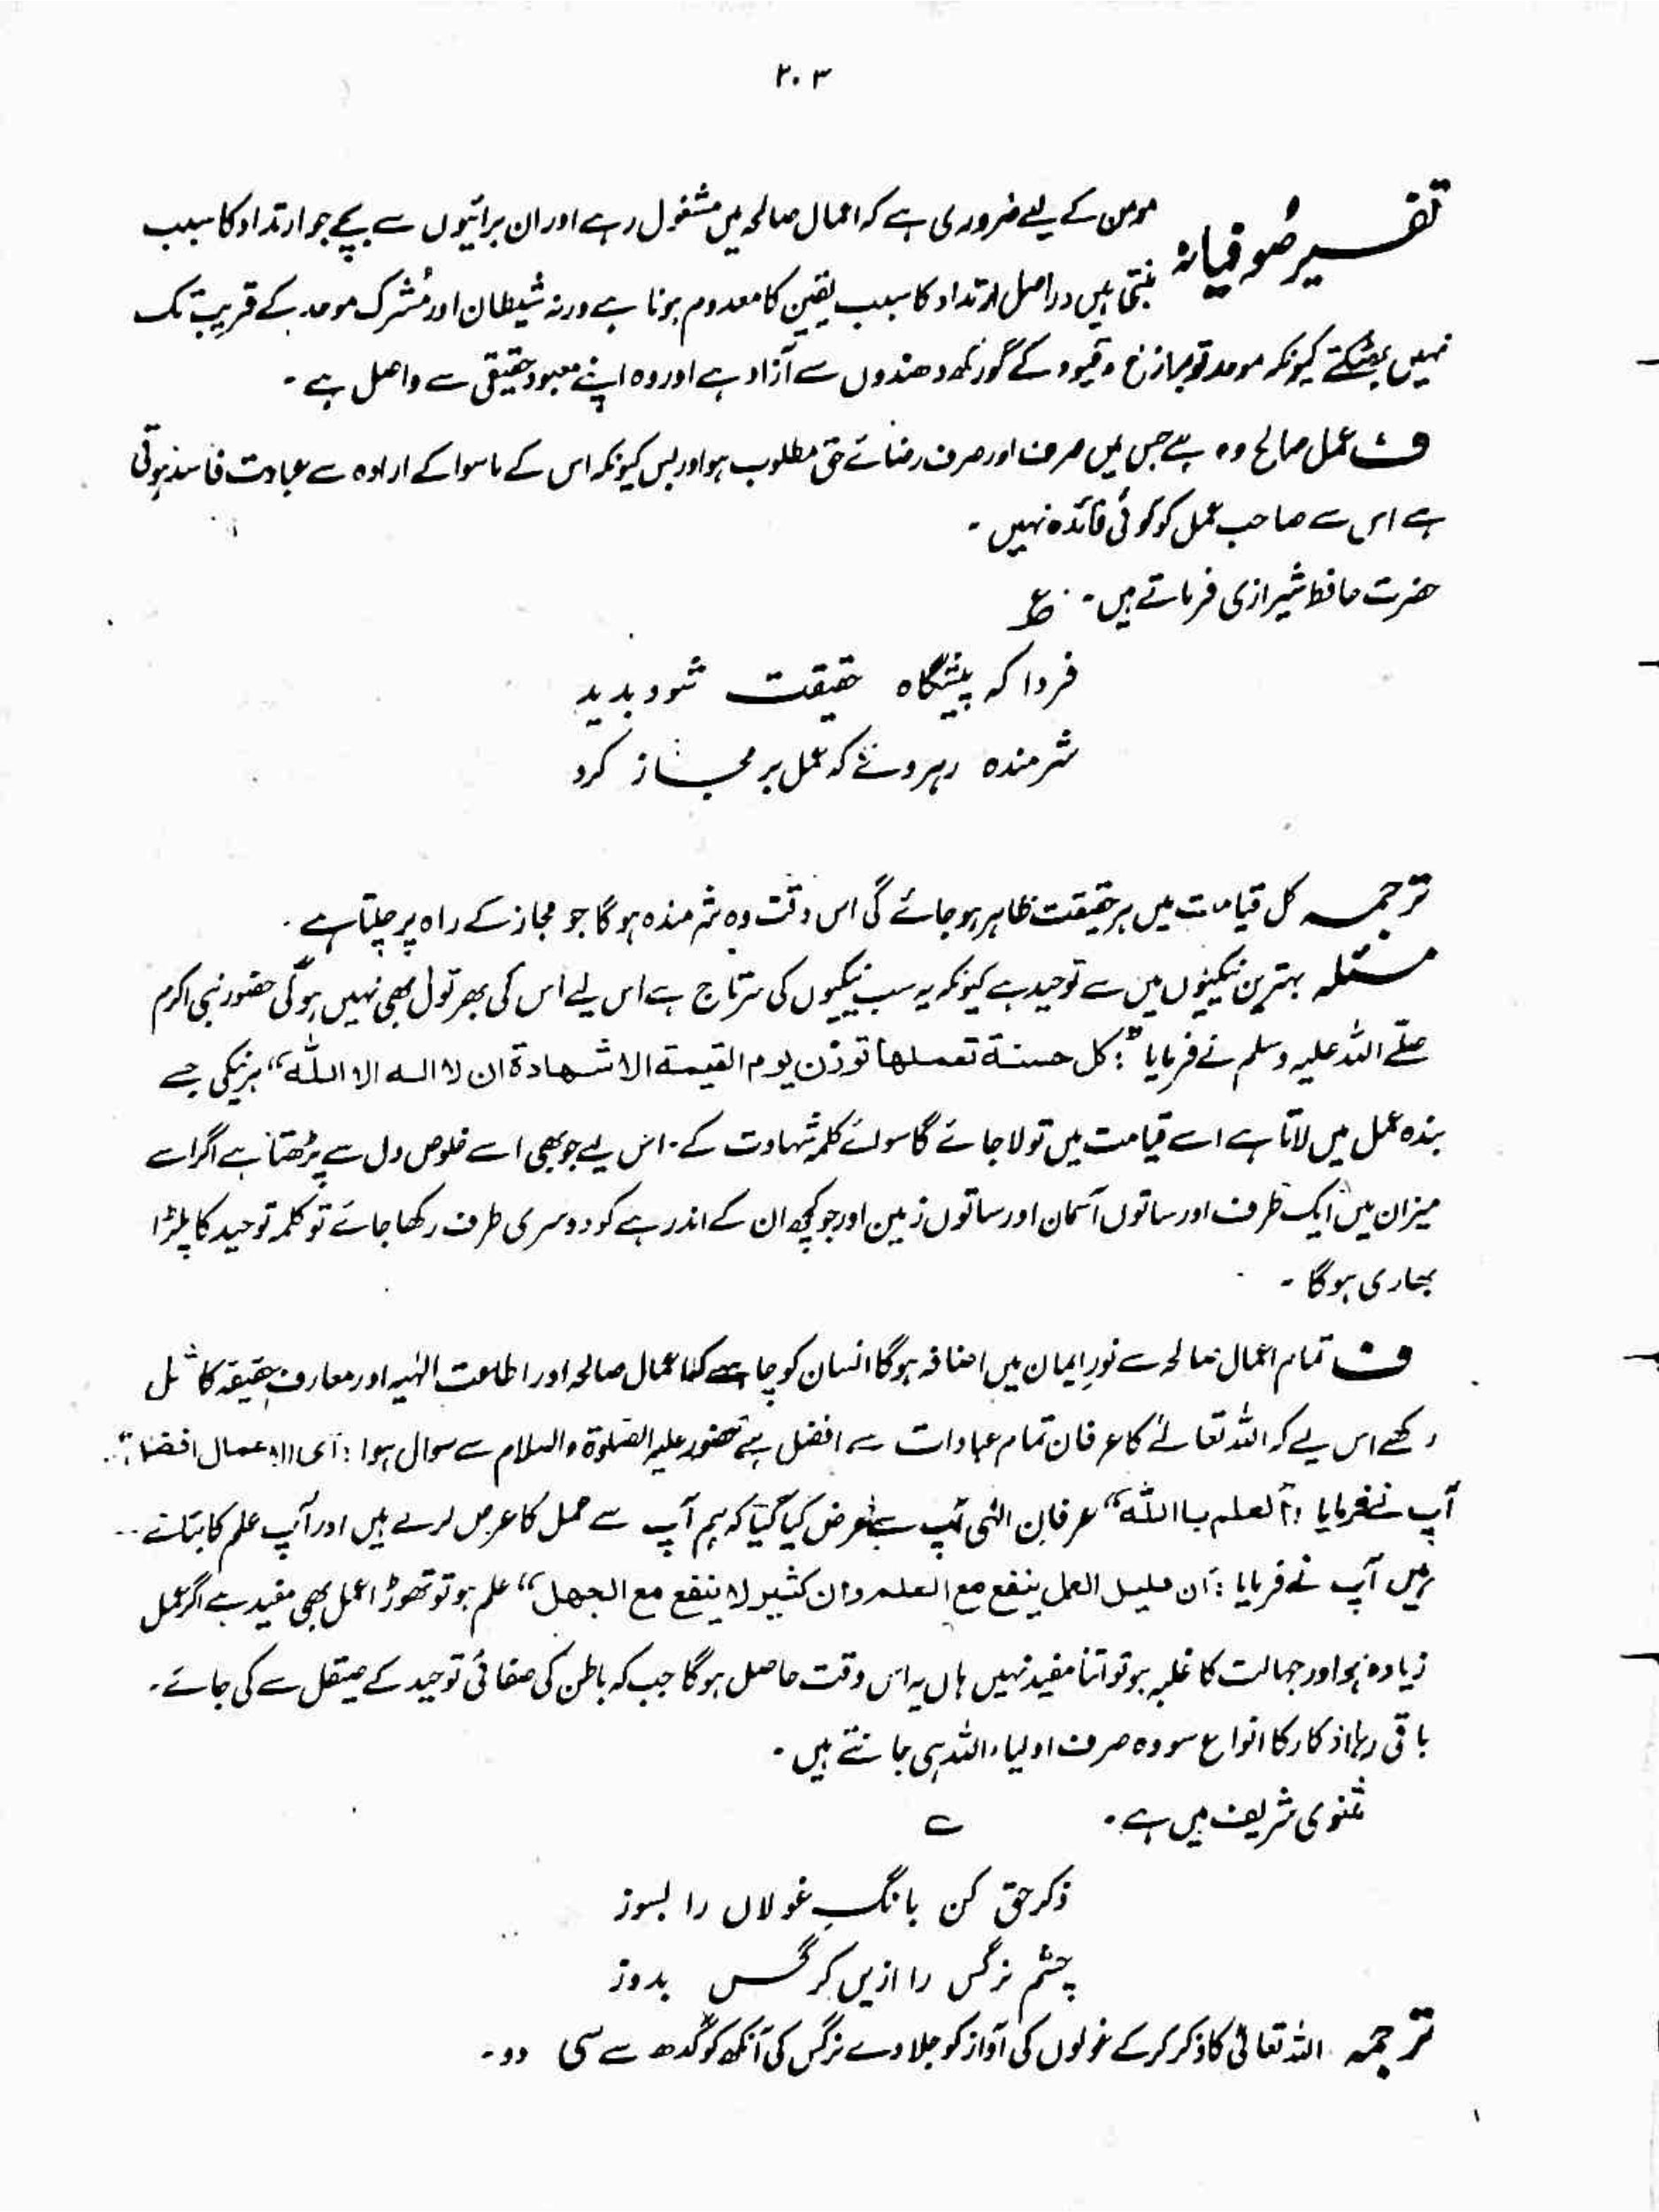 ۲۰۳
تفسیر صُوفیانہ مومن کے لیے ضروری ہے کہ اعمال صالحہ میں مشغول رہے اور ان برائیوں سے بچے جو ارتداد کا سبب
بنتی ہیں دراصل ارتداد کا سبب یقین کا معدوم ہونا ہے ورنہ شیطان اور مُشرک موحد کے قریب تک
نہیں بھٹکتے کیونکہ موحد تو و قیود کے گورکھ دھندوں سے آزاد ہے اور وہ اپنے معبود حقیقی سے واصل ہے ۔
ف عمل صالح وہ ہے جس میں صرف اور صرف رضائے حق مطلوب ہو اور بس کیونکہ اس کے ماسوا کے ارادہ سے عبادت فاسد ہوتی
ہے اس سے صاحب عمل کو کوئی فائدہ نہیں ۔
حضرت حافظ شیرازی فرماتے ہیں ۔ ع
فردا کہ پیشگاہ حقیقت شود بدید
شرمندہ رہروئے کہ عمل بر مجاز کرد
ترجمہ کل قیامت میں ہر حقیقت ظاہر ہو جائے گی اس وقت وہ شرمندہ ہوگا جو مجاز کے راہ پر چلتا ہے ۔
مسئلہ بہترین نیکیوں میں سے توحید ہے کیونکہ یہ سب نیکیوں کی سرتاج ہے اس لیے اس کی بھر تول بھی نہیں ہوگی حضور نبی اکرم
صلّے اللہ علیہ وسلم نے فرمایا : "کل حسنة تعملها توزن يوم القيمة الا شهادة ان لا اله الا الله" ہر نیکی جسے
بندہ عمل میں لاتا ہے اسے قیامت میں تولا جائے گا سوائے کلمہ شہادت کے ۔ اس لیے جو بھی اسے خلوص دل سے پڑھتا ہے اگر اسے
میزان میں ایک طرف اور ساتوں آسمان اور ساتوں زمین اور جو کچھ ان کے اندر ہے کو دوسری طرف رکھا جائے تو کلمہ توحید کا پلڑا
بھاری ہوگا ۔
ف تمام اعمال صالحہ سے نورِ ایمان میں اضافہ ہوگا انسان کو چاہیے کہ اعمال صالحہ اور اطاعت الٰہیہ اور معارف حقیقہ کا
رکھے اس لیے کہ اللہ تعالےٰ کا عرفان تمام عبادات سے افضل ہے حضور علیہ الصلوٰۃ والسلام سے سوال ہوا : ای الاعمال افضل
آپ نے فرمایا "العلم باالله" عرفان الٰہی آپ سے عرض کیا گیا کہ ہم آپ سے عمل کا عرض کرتے ہیں اور آپ علم کا بتاتے
ہیں آپ نے فرمایا : "ان قليل العمل ينفع مع العلم وان كثير لا ينفع مع الجهل" علم ہو تو تھوڑا عمل بھی مفید ہے اگر عمل
زیادہ ہو اور جہالت کا غلبہ ہو تو اتنا مفید نہیں ہاں یہ اس وقت حاصل ہوگا جب کہ باطن کی صفائی توحید کے صیقل سے کی جائے ۔
باقی رہا اذکار کا انواع سو وہ صرف اولیاء اللہ ہی جانتے ہیں ۔
مثنوی شریف میں ہے ۔
ذکر حق کن بانگِ غولاں را بسوز
چشم نرگس را ازیں کرگس بدوز
ترجمہ اللہ تعالیٰ کا ذکر کر کے غولوں کی آواز کو جلا دے نرگس کی آنکھ کو گدھ سے سی دو ۔